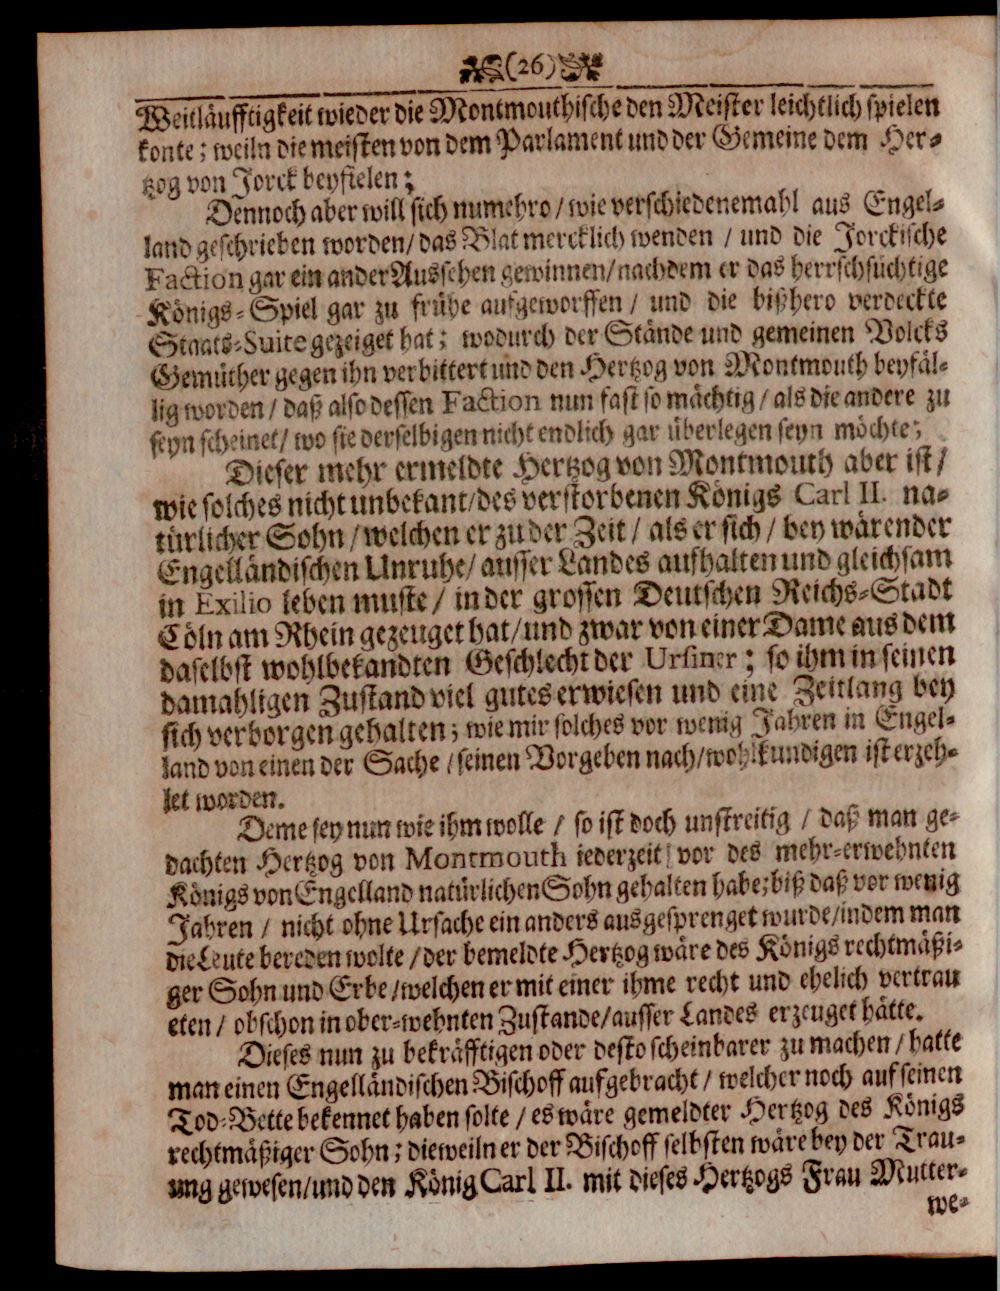 (26)
Weitläufftigkeit wieder die Montmouthische den Meister leichtlich spielen
konte; weiln die meisten von dem Parlament und der Gemeine dem Her-
tzog von Jorck beyfielen;
Dennoch aber will sich numehro / wie verschiedenemahl aus Engel-
land geschrieben worden / das Blat mercklich wenden / und die Jorckische
Faction gar ein ander Aussehen gewinnen / nachdem er das herrschsüchtige
Königs-Spiel gar zu frühe aufgeworffen / und die bißhero verdeckte
Staats-Suite gezeiget hat; wodurch der Stände und gemeinen Volcks
Gemüther gegen ihn verbittert und den Hertzog von Montmouth beyfäl-
lig worden / daß also dessen Faction nun fast so mächtig / als die andere zu
seyn scheinet / wo sie derselbigen nicht endlich gar überlegen seyn möchte;
Dieser mehr ermeldte Hertzog von Montmouth aber ist /
wie solches nicht unbekant / des verstorbenen Königs Carl II. na-
türlicher Sohn / welchen er zu der Zeit / als er sich / bey wärender
Engelländischen Unruhe / ausser Landes aufhalten und gleichsam
in Exilio leben muste / in der grossen Deutschen Reichs-Stadt
Cöln am Rhein gezeuget hat / und zwar von einer Dame aus dem
daselbst wohlbekandten Geschlecht der Ursiner; so ihm in seinen
damahligen Zustand viel gutes erwiesen und eine Zeitlang bey
sich verborgen gehalten; wie mir solches vor wenig Jahren in Engel-
land von einen der Sache / seinen Vorgeben nach / wohlkundigen ist erzeh-
let worden.
Deme sey nun wie ihm wolle / so ist doch unstreitig / daß man ge-
dachten Hertzog von Montmouth iederzeit vor des mehr-erwehnten
Königs von Engelland natürlichen Sohn gehalten habe; biß daß vor wenig
Jahren / nicht ohne Ursache ein anders ausgesprenget wurde / indem man
die Leute bereden wolte / der bemeldte Hertzog wäre des Königs rechtmäßi-
ger Sohn und Erbe / welchen er mit einer ihme recht und ehelich vertrau
eten / obschon in ober-wehnten Zustande / ausser Landes erzeuget hätte.
Dieses nun zu bekräfftigen oder desto scheinbarer zu machen / hatte
man einen Engelländischen Bischoff aufgebracht / welcher noch auf seinen
Tod-Bette bekennet haben solte / es wäre gemeldter Hertzog des Königs
rechtmäßiger Sohn; dieweiln er der Bischoff selbsten wäre bey der Trau-
ung gewesen / und den König Carl II. mit dieses Hertzogs Frau Mutter-
we-